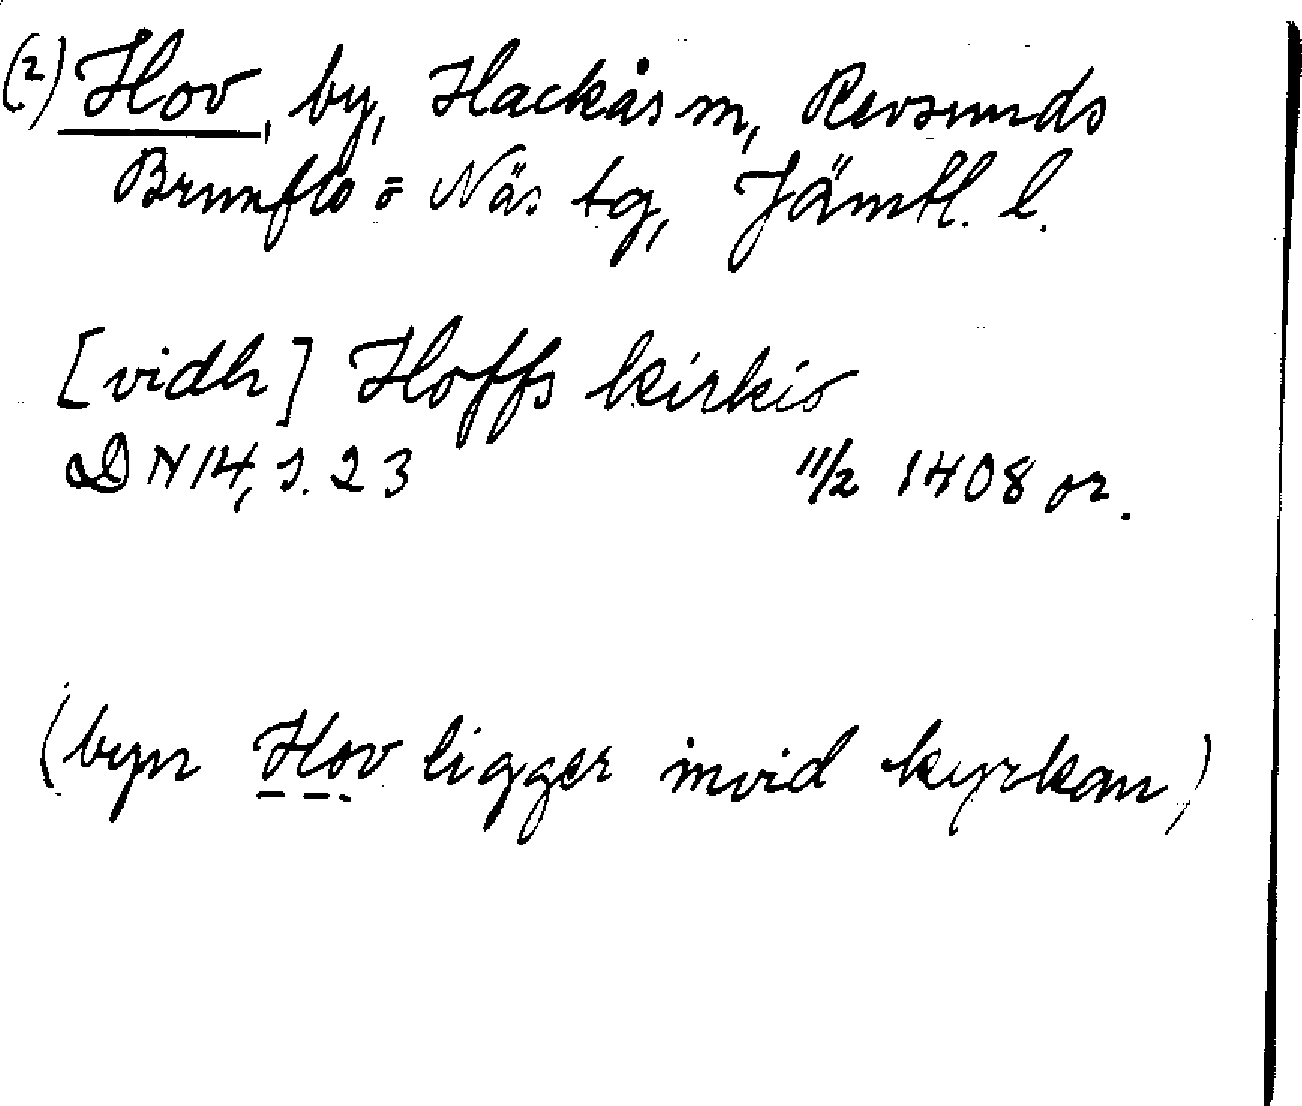 (2) Hov, by, Hackås sn, Revsunds
Brunflo = Näs tg, Jämtl. l.
[vidh] Hoffs kirkio
DN 14, s. 23 11/2 1408 or.
(byn Hov ligger invid kyrkan)